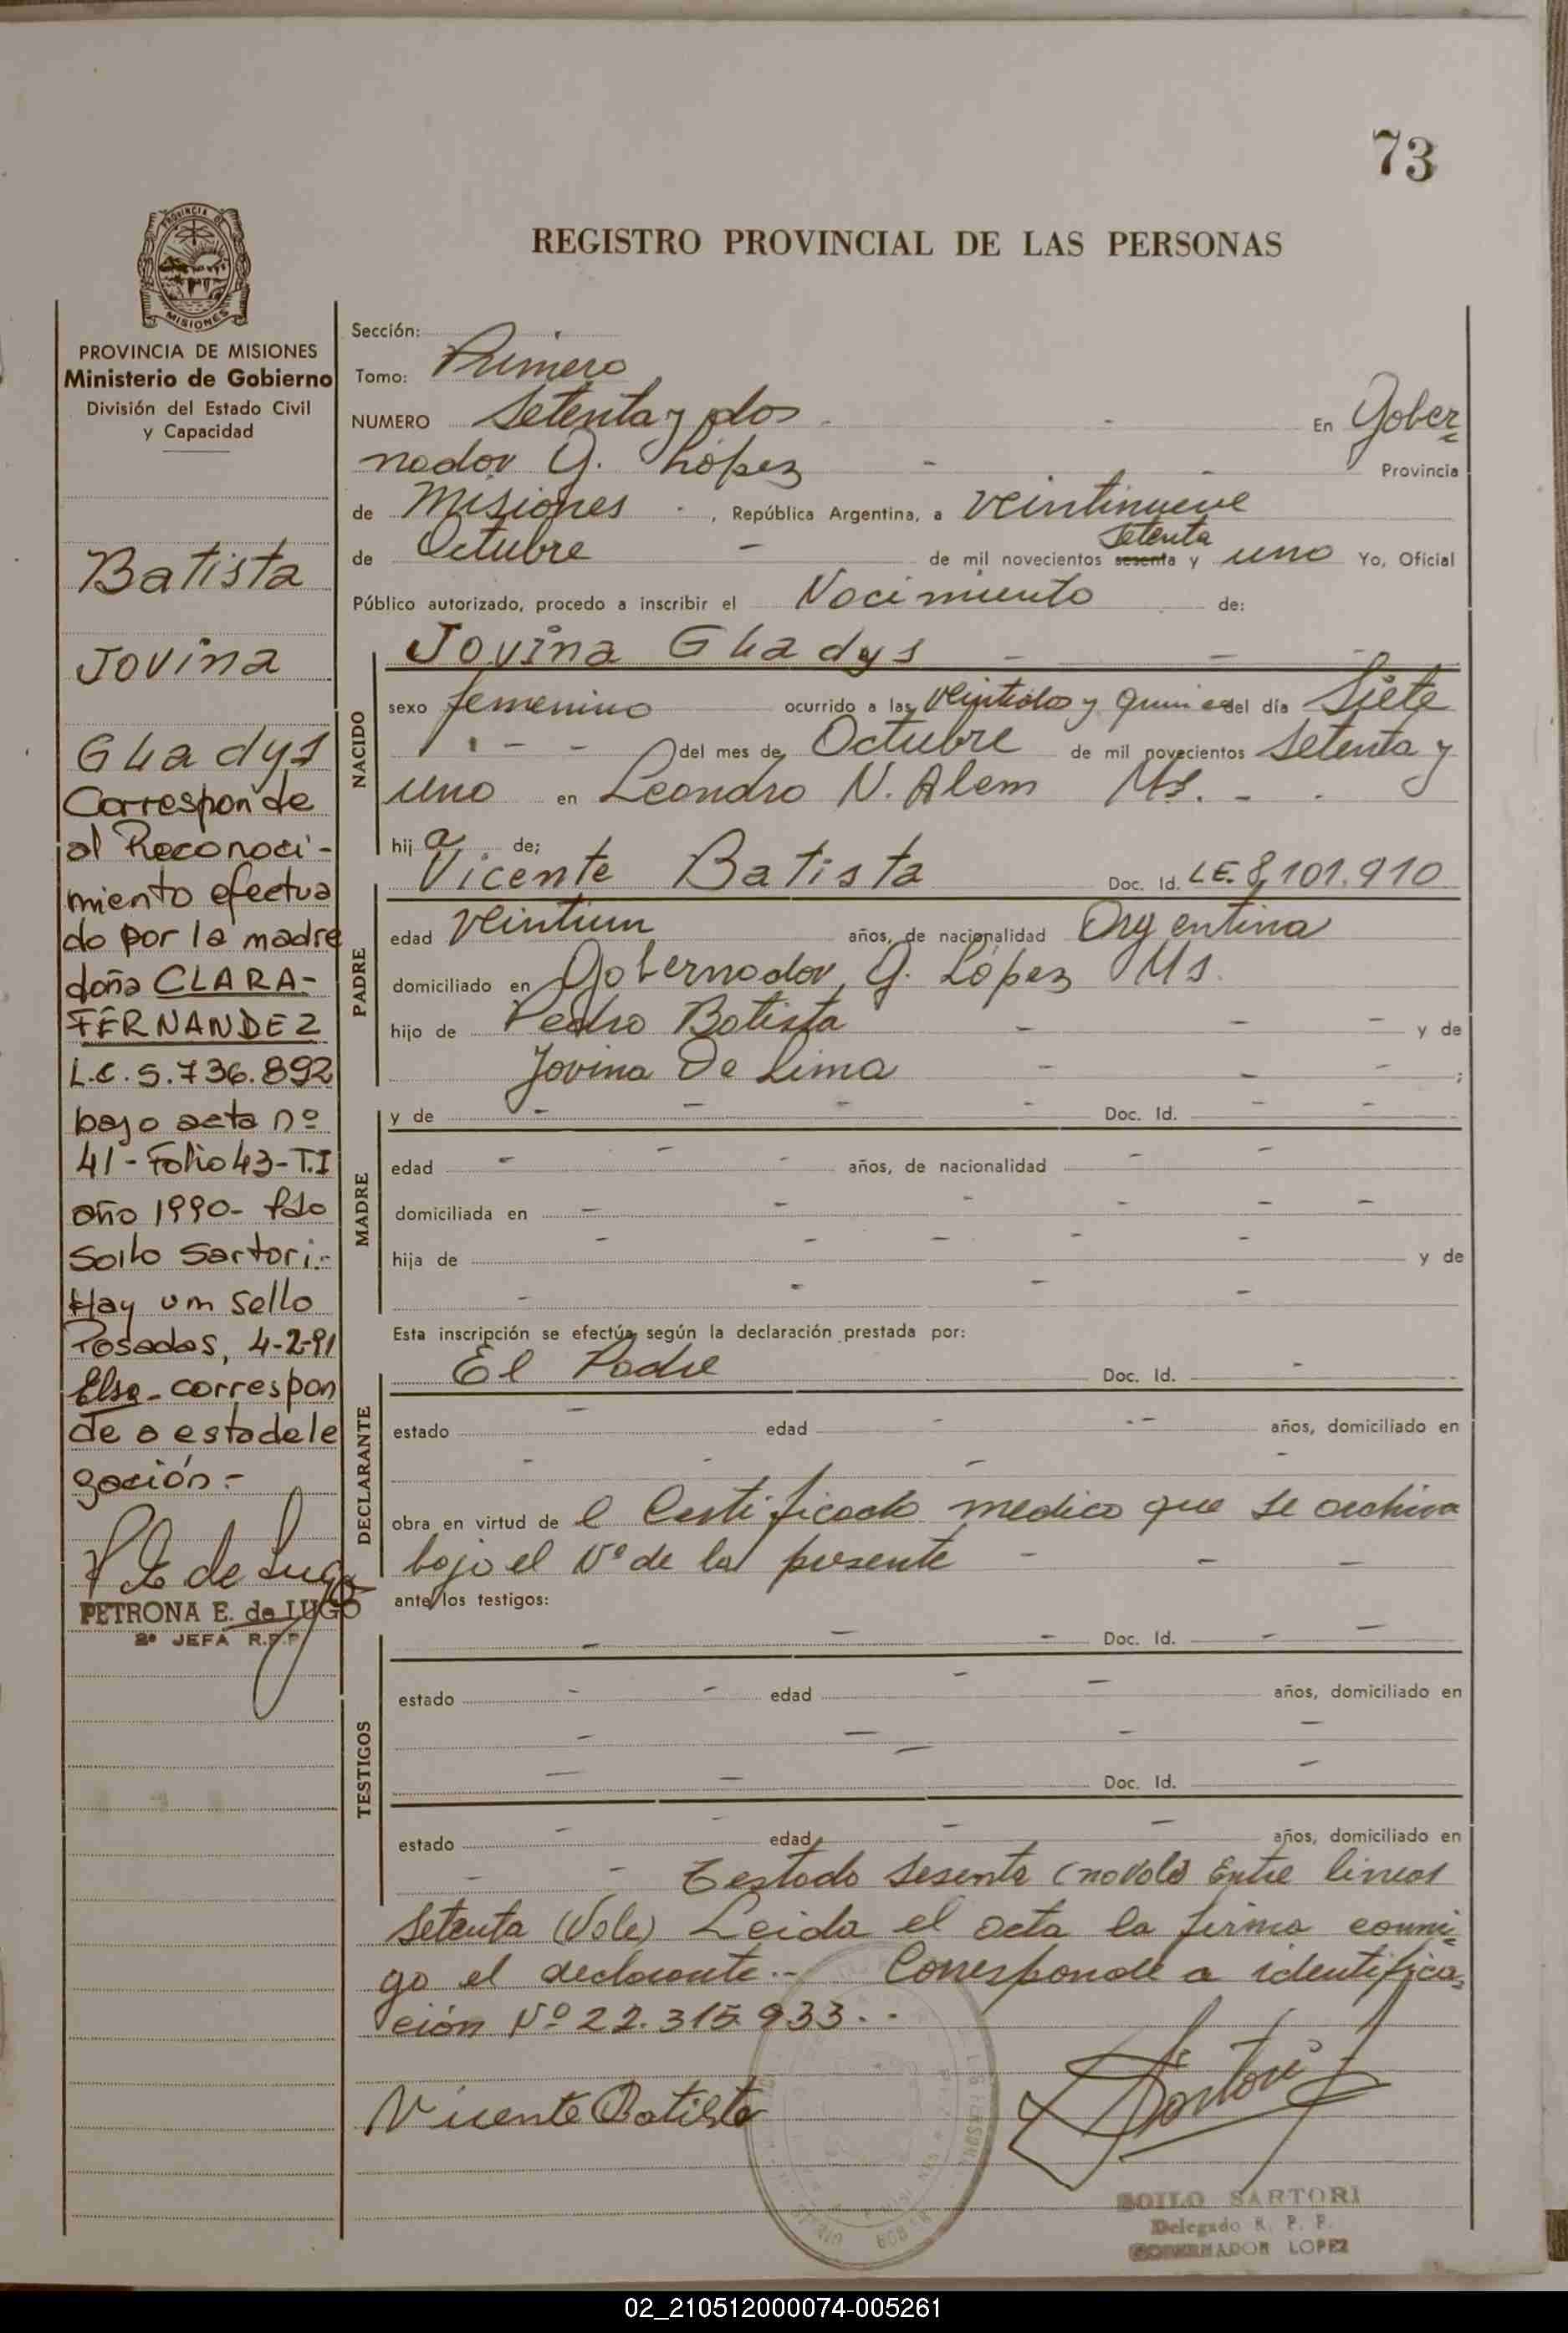 73
REGISTRO PROVINCIAL DE LAS PERSONAS
PROVINCIA DE
MISIONES
PROVINCIA DE MISIONES
Ministerio de Gobierno
División del Estado Civil
y Capacidad
Batista
Jovina
Gladys
Corresponde
al Reconoci-
miento efectua
do por la madre
doña CLARA-
FERNANDEZ
L.C. 5.736.892
bajo acta nº
41-Folio 43-T.I
año 1990- fdo
Soilo Sartori.-
Hay un sello
Posadas, 4-2-91
Elsa- correspon
de a esta dele
gación.-
P E de Lugo
PETRONA E. de LUGO
2ª JEFA R.P.P.
Sección:
Tomo: Primero
NUMERO Setenta y dos - En Gober=
nador G. López - - Provincia
de Misiones , República Argentina, a veintinueve
setenta
de Octubre - de mil novecientos sesenta y uno Yo, Oficial
Público autorizado, procedo a inscribir el Nacimiento de:
NACIDO
Jovina Gladys - - -
sexo femenino ocurrido a las veintidos y quince del día Siete
- - - del mes de Octubre de mil novecientos setenta y
uno en Leandro N. Alem Ms. - -
hija de;
PADRE
Vicente Batista Doc. Id. L.E. 8.101.910
edad veintiun años, de nacionalidad Argentina
domiciliado en Gobernador G. López Ms.
hijo de Pedro Batista - - - y de
Jovina De Lima - - - ;
MADRE
y de - - - - Doc. Id. - -
edad - - - años, de nacionalidad - -
domiciliada en - - - - - -
hija de - - - - - y de
- - - -
Esta inscripción se efectúa según la declaración prestada por:
DECLARANTE
El Padre Doc. Id. -
estado - edad - - años, domiciliado en
- - - -
obra en virtud de l Certificado medico que se archiva
bajo el Nº de la presente - - -
ante los testigos:
TESTIGOS
- - - Doc. Id. - -
estado - - edad - - años, domiciliado en
- - - -
- - - Doc. Id. -
estado - - edad - - años, domiciliado en
- - Testado sesenta (no vale) Entre lineas
setenta (Vale) Leida el acta la firma conmi=
go el declarante.- Corresponde a identifica=
ción Nº 22.315.933.-
Vicente Batista
Sartori
SOILO SARTORI
Delegado R. P. P.
GOBERNADOR LOPEZ
02_210512000074-005261